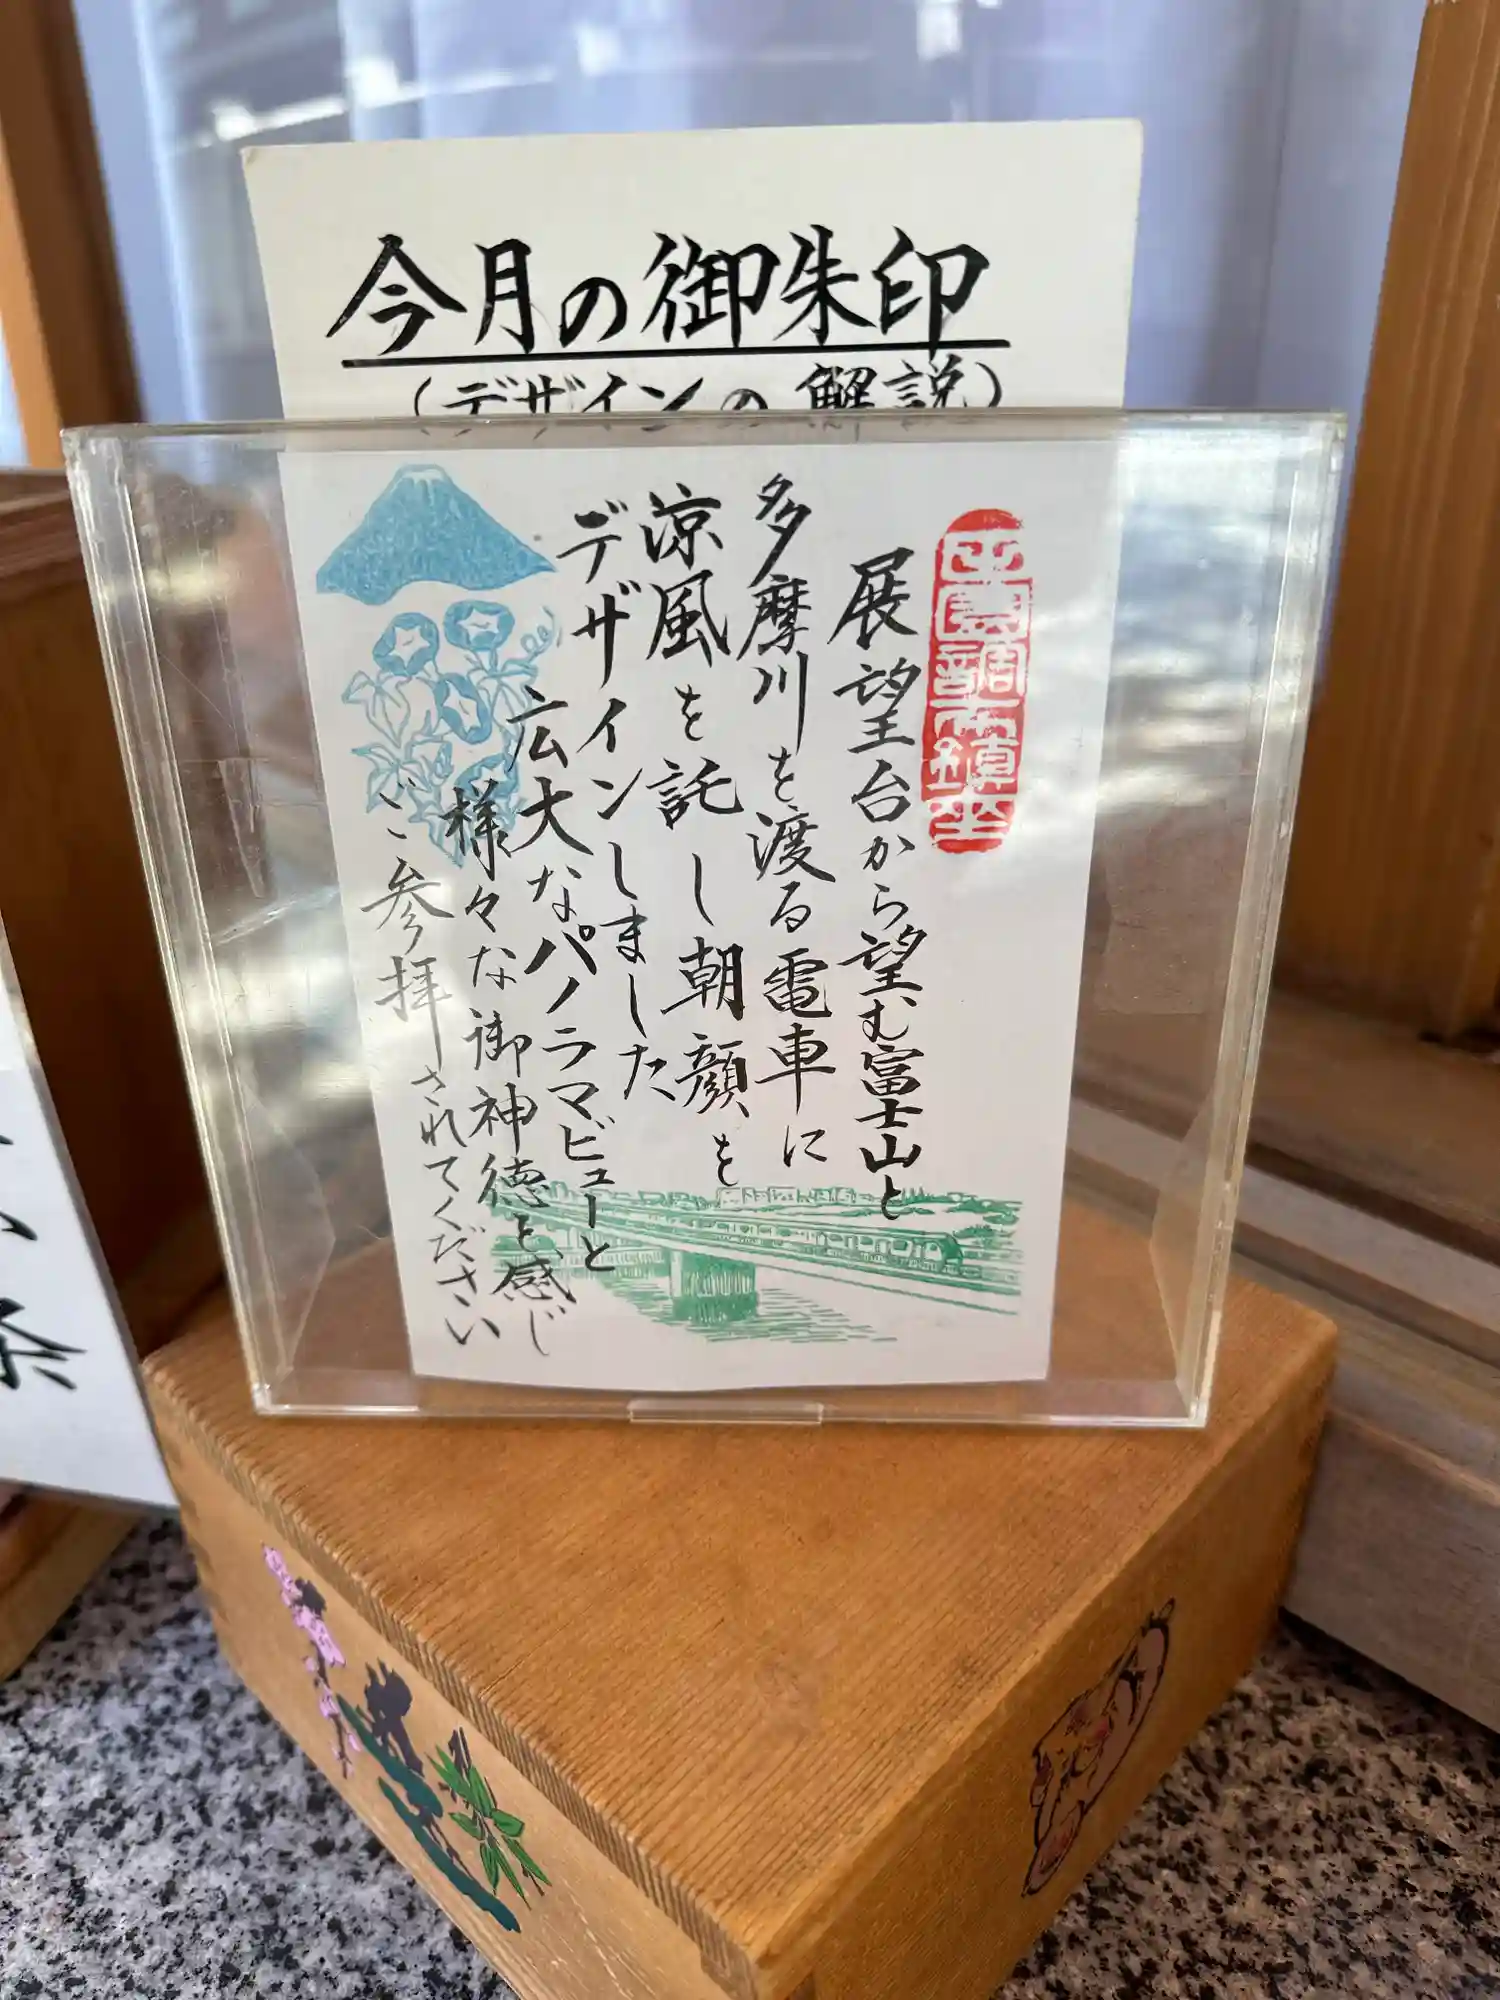 今月の御朱印
(デザインの解説)
展望台から望む富士山と
多摩川を渡る電車に
涼風を託し朝顔を
デザインしました
広大なパノラマビューと
様々な御神徳を感じ
ご参拝されてください